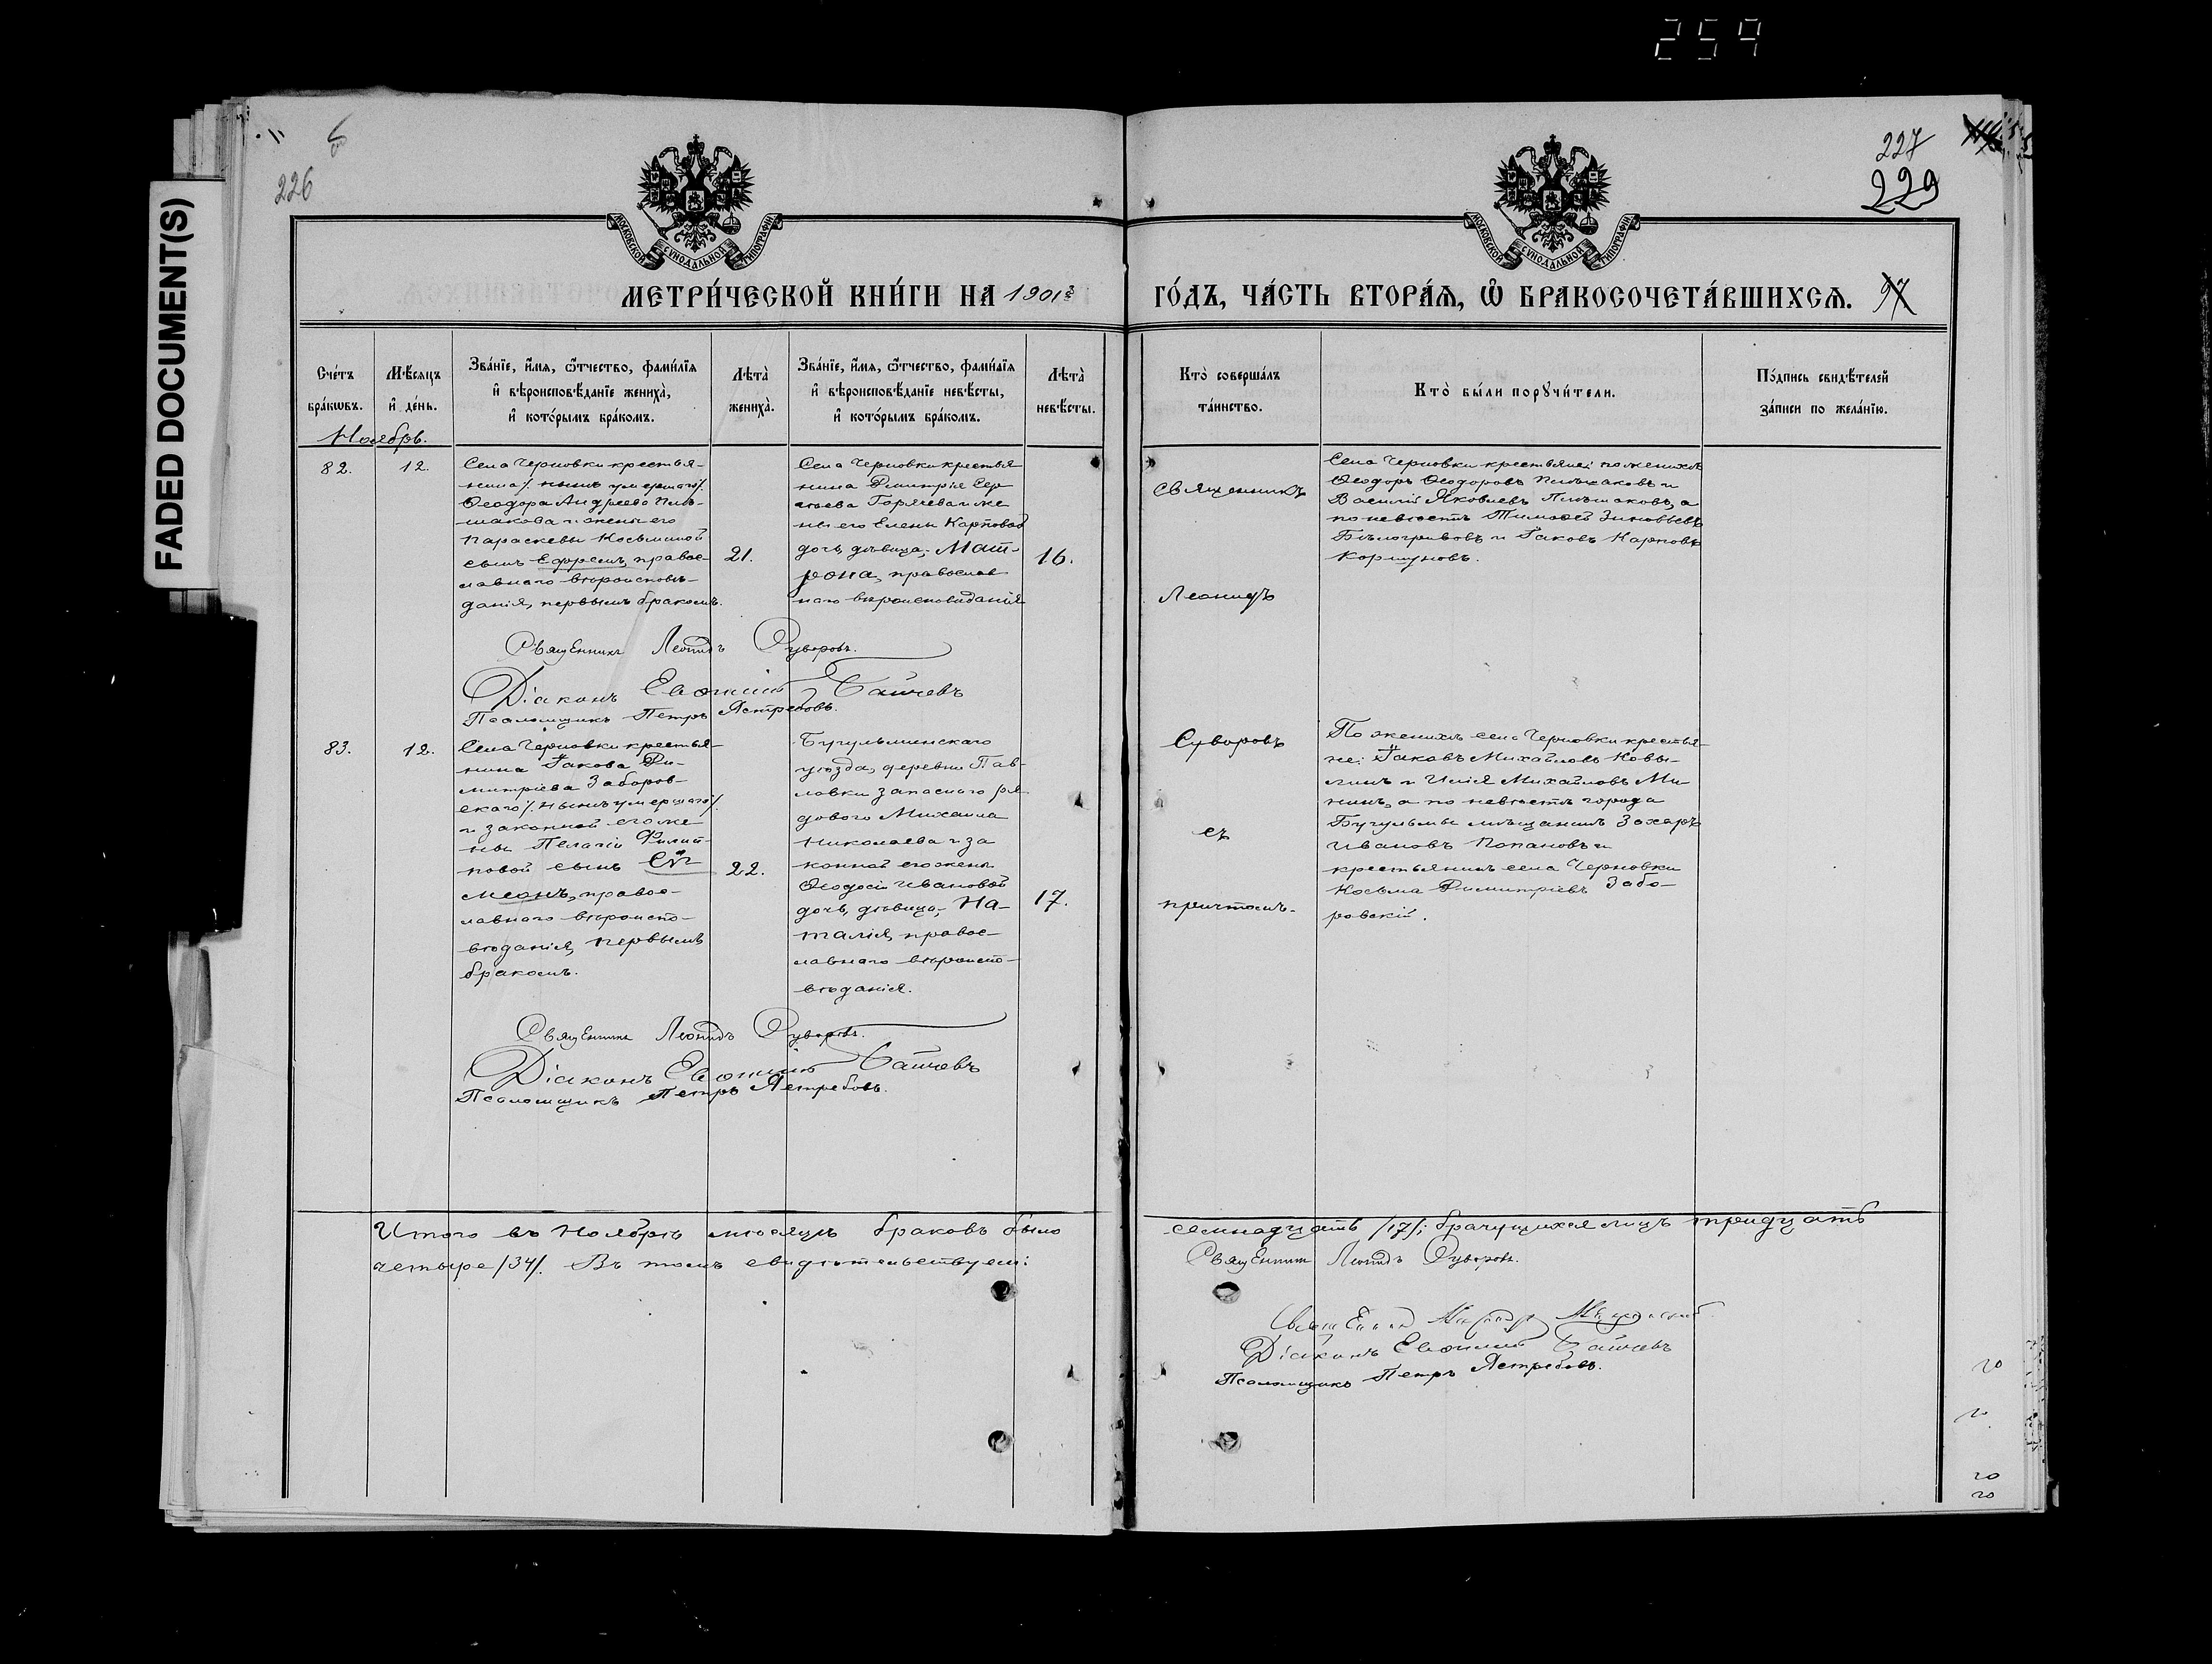 259
FADED DOCUMENT(S)
226
227
229
МОСКОВСКОЙ СУНОДАЛЬНОЙ ТИПОГРАФІИ
МОСКОВСКОЙ СУНОДАЛЬНОЙ ТИПОГРАФІИ
МЕТРИ́ЧЕСКОЙ КНИ́ГИ НА 1901й
ГО́ДЪ, ЧА́СТЬ ВТОРА́Я, Ѡ БРАКОСОЧЕТА́ВШИХСЯ. 97
Сче́тъ бра́кѡвъ.
Мѣ́сяцъ и҆ де́нь.
Зва́нїе, и҆́мя, ѻ҆́тчество, фами́лїя
и҆ вѣроисповѣ́данїе жениха̀,
и҆ кото́рымъ бра́комъ.
Лѣта̀ жениха̀.
Зва́нїе, и҆́мя, ѻ҆́тчество, фами́лїя
и҆ вѣроисповѣ́данїе невѣ́сты,
и҆ кото́рымъ бра́комъ.
Лѣта̀ невѣ́сты.
Кто̀ соверша́лъ та́инство.
Кто̀ бы́ли порꙋчи́тели.
По́дпись свидѣ́телей
за́писи по жела́нїю.
Ноябрь.
82.
12.
Села Черновки крестья-
нина /. нынѣ умершаго /.
Ѳеодора Андреева Пиль-
шакова и жены его
Параскевы Косьминой
сынъ Ефремъ, правос-
лавнаго вѣроисповѣ-
данія, первымъ бракомъ.
21.
Села Черновки крестья
нина Дмитрія Сер
гѣева Горячева и же
ны его Елены Карповой
дочь, дѣвица,- Мат-
рона, православ
наго вѣроисповѣданія
16.
Священникъ
Леонидъ
Суворовъ
съ
причтомъ.
Села Черновки крестьяне: по женихѣ
Ѳеодоръ Ѳеодоровъ и
Василій Яковлевъ, а
по невѣстѣ Тимоѳей Зиновьевъ
Бѣлогривовъ и Іаковъ Карповъ
Коршуновъ.
Священникъ Леонидъ Суворовъ.
Діаконъ Евѳимій
Псаломщикъ Петръ Ястребовъ.
83.
12.
Села Черновки крестья-
нина Іакова Ди-
митріева Заборов-
скаго /. нынѣ умершаго /.
и законной его же
ны Пелагіи Филип-
повой сынъ Сѵ-
меонъ, правос-
лавнаго вѣроиспо-
вѣданія, первымъ
бракомъ.
22.
Бугульминскаго
уѣзда, деревни Пав-
ловки запаснаго ря
дового Михаила
Николаева и за
конной его жены
Ѳеодосіи Ивановой
дочь, дѣвица,- На-
талія, правос-
лавнаго вѣроиспо-
вѣданія.
17.
По женихѣ села Черновки крестья-
не: Іаковъ Михайловъ Новы-
линъ и Илія Михайловъ Ми
нинъ, а по невѣстѣ города
Бугульмы мѣщанинъ Захаръ
Ивановъ Попановъ и
крестьянинъ села Черновки
Косьма Димитріевъ Забо-
ровскій.
Священникъ Леонидъ Суворовъ.
Діаконъ Евѳимій
Псаломщикъ Петръ Ястребовъ.
Итого въ Ноябрѣ мѣсяцѣ браковъ было семнадцать /17/; брачущихся лицъ тридцать
четыре /34/. Въ томъ свидѣтельствуемъ:
Священникъ Леонидъ Суворовъ.
Священникъ
Діаконъ Евѳимій
Псаломщикъ Петръ Ястребовъ.
20
20
20
20